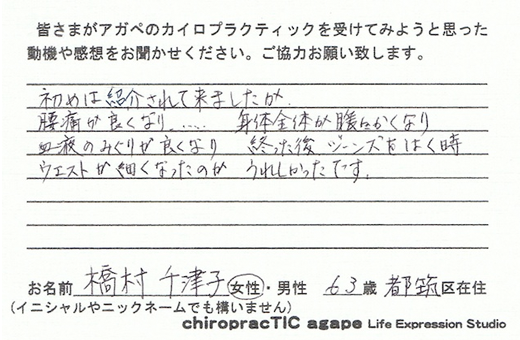 皆さまがアガペのカイロプラクティックを受けてみようと思った
動機や感想をお聞かせください。ご協力お願い致します。
初めは紹介されて来ましたが
腰痛が良くなり..... 身体全体が暖かくなり
血液のめぐりが良くなり 終った後 ジーンズをはく時
ウエストが細くなったのが うれしかったです。
お名前 橋村 千津子 女性・男性 63歳 都筑区在住
(イニシャルやニックネームでも構いません)
chiropracTIC agape Life Expression Studio